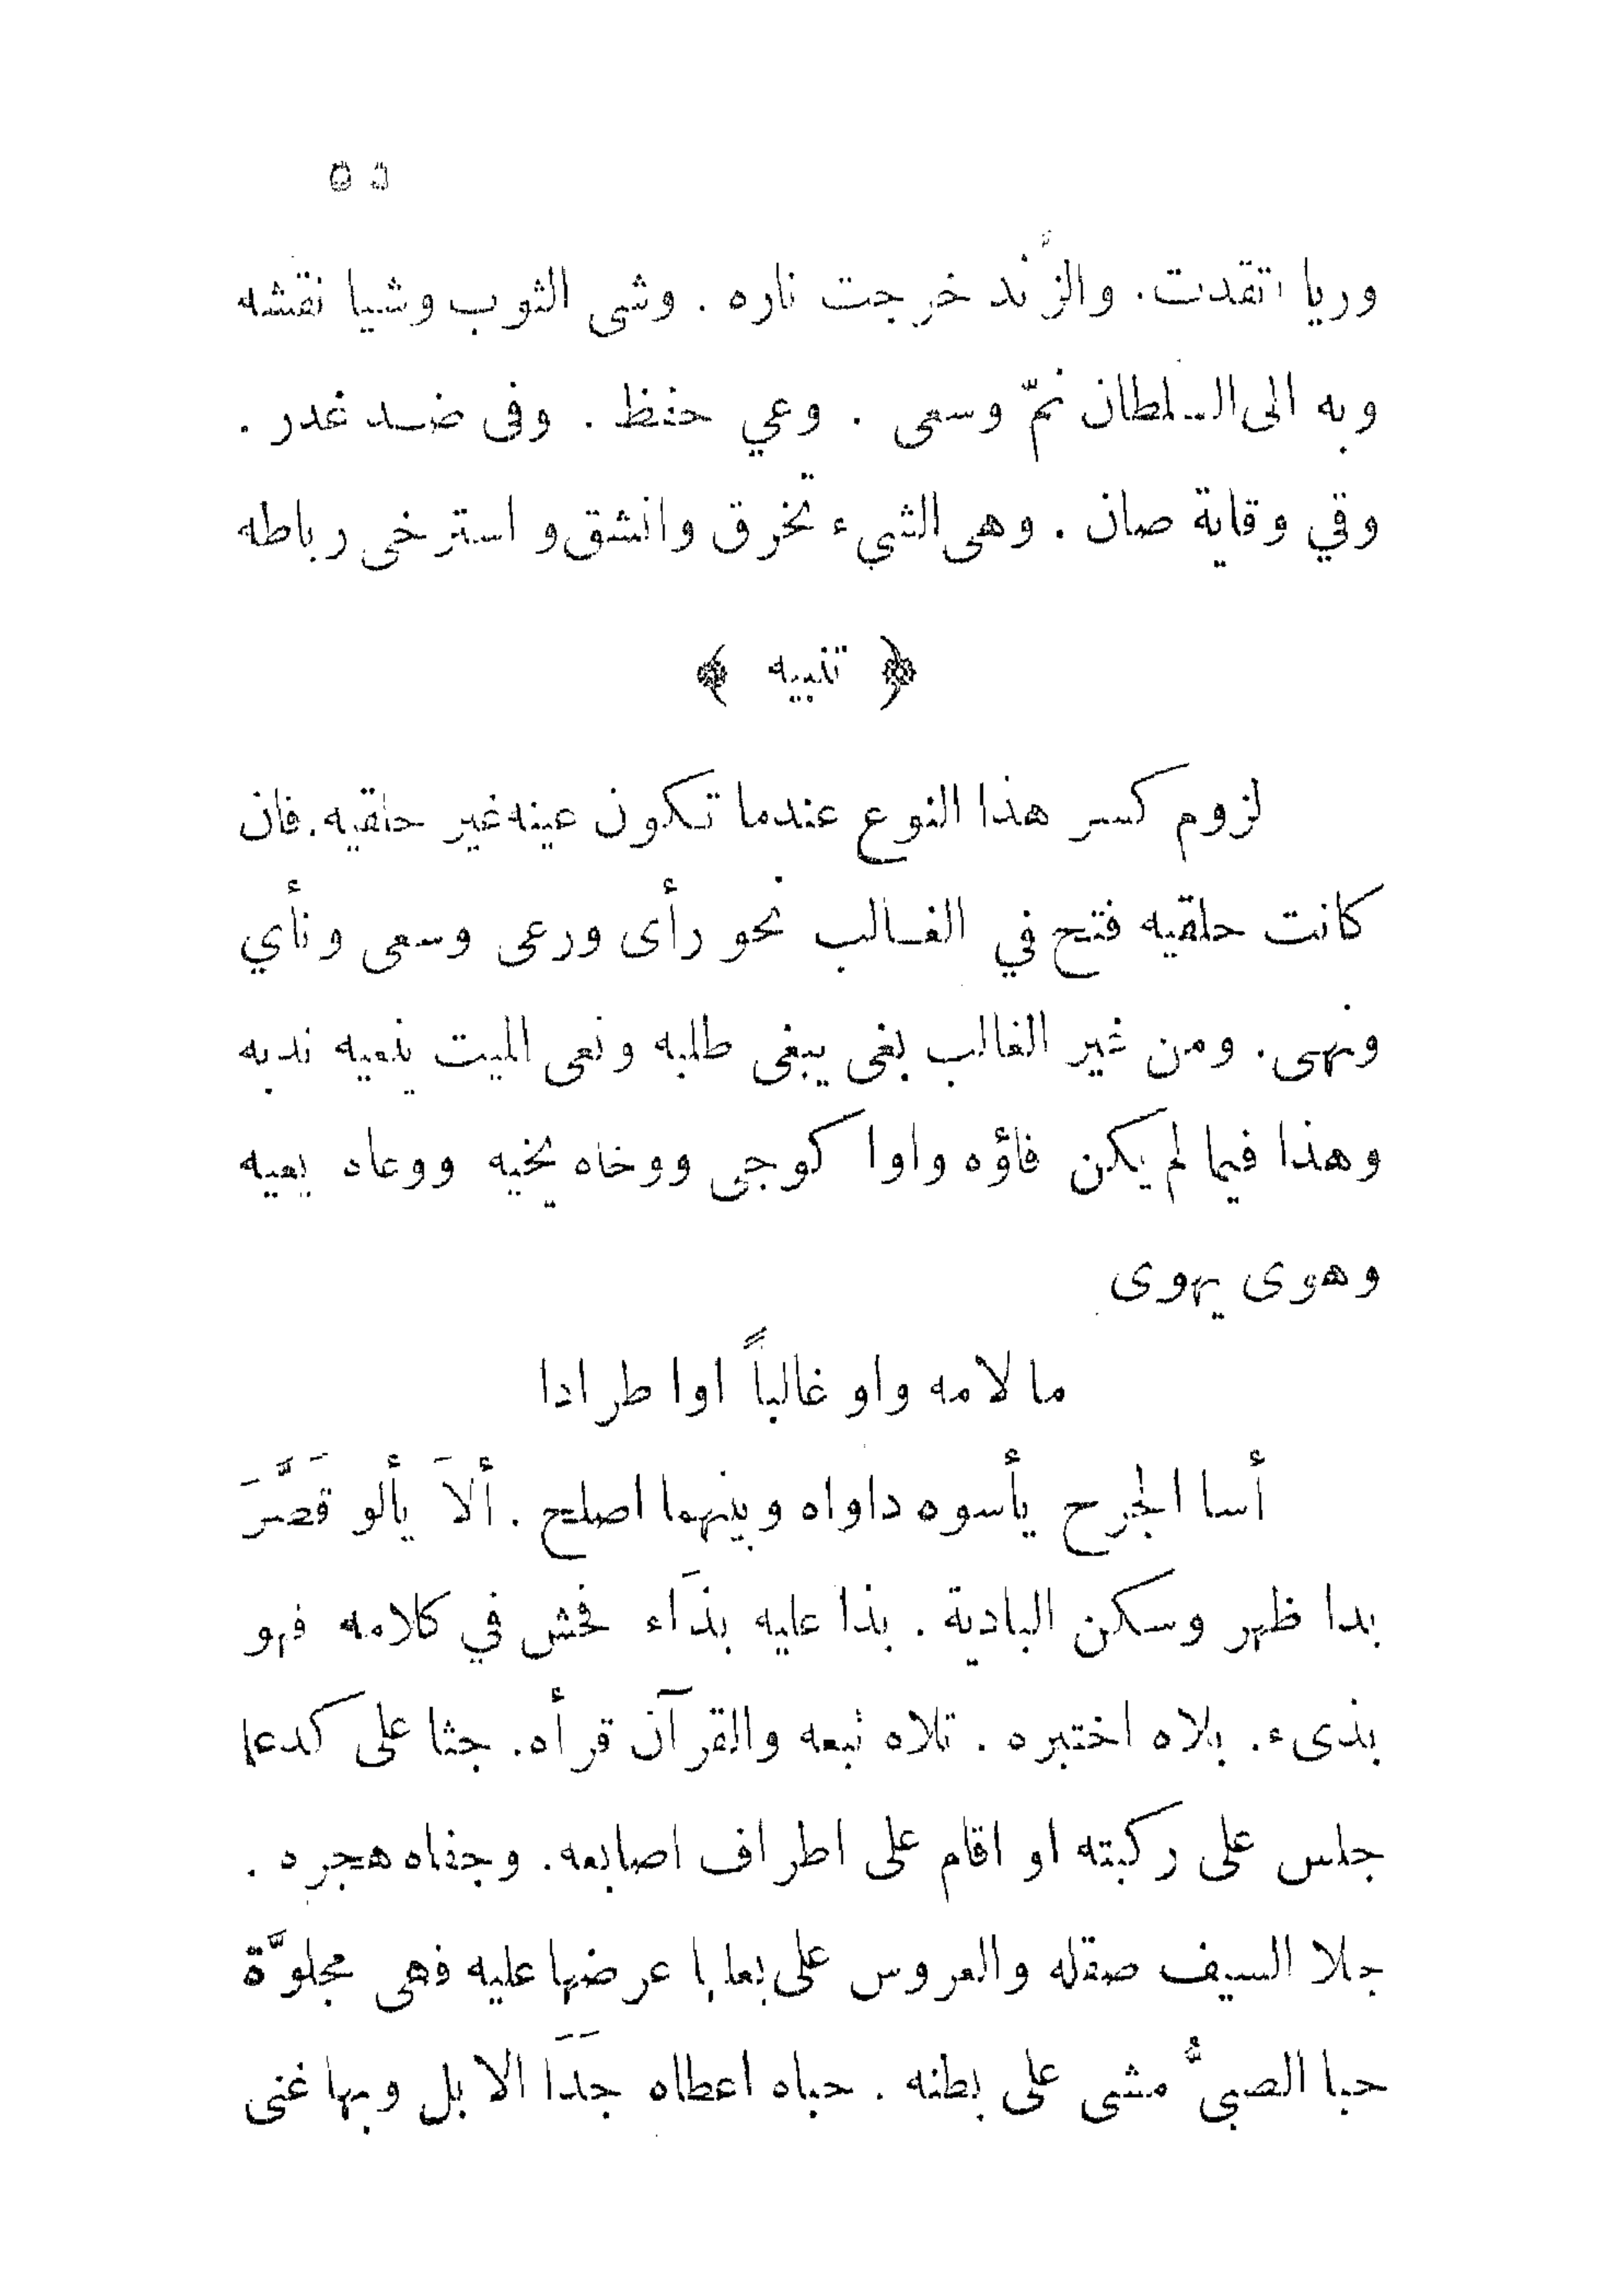 وريا اتقدت. والزَّند خرجت ناره . وشى الثوب وشيا نقشه
وبه الى السلطان نمّ وسعى . وعي حفظ . وفى ضد غدر .
وقي وقاية صان . وهى الشيء تخرق وانشق و استرخى رباطه
﴿ تنبيه ﴾
لزوم كسر هذا النوع عندما تكون عينه غير حلقيه. فان
كانت حلقيه فتح في الغالب نحو رأى ورعى وسعى ونأي
ونهى. ومن غير الغالب بغى يبغى طلبه ونعى الميت ينعيه ندبه
وهذا فيما لم يكن فاؤه واوا كوجى ووخاه يخيه ووعاه يعيه
وهوى يهوى
ما لامه واو غالباً اوا طرادا
أسا الجرح يأسوه داواه وبينهما اصلح . ألاَ يألو قَصَّرَ
بدا ظهر وسكن البادية . بذا عليه بذَاء فحش في كلامه فهو
بذىء. بلاه اختبره . تلاه تبعه والقرآن قرأه. جثا على كدعا
جلس على ركبته او اقام على اطراف اصابعه. وجفاه هجره .
جلا السيف صقله والعروس على بعلها عرضها عليه فهى مجلوَّة
حبا الصبيُّ مشى على بطنه . حباه اعطاه جدَا الابل وبها غنى